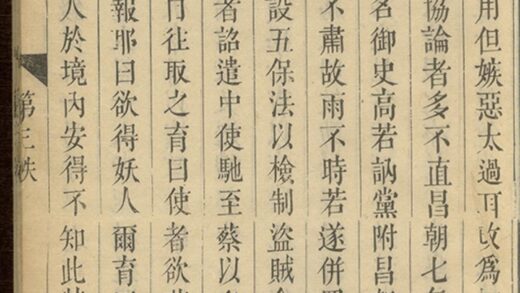 用但嫉惡太過耳改為
協論者多不直昌朝七
名御史高若訥黨附昌
不肅故雨不時若遂併
設五保法以檢制盜賊
者詔遣中使馳至蔡以
往取之育曰使者欲
報耶曰欲得妖人爾育
人於境內安得不知此
第三帙